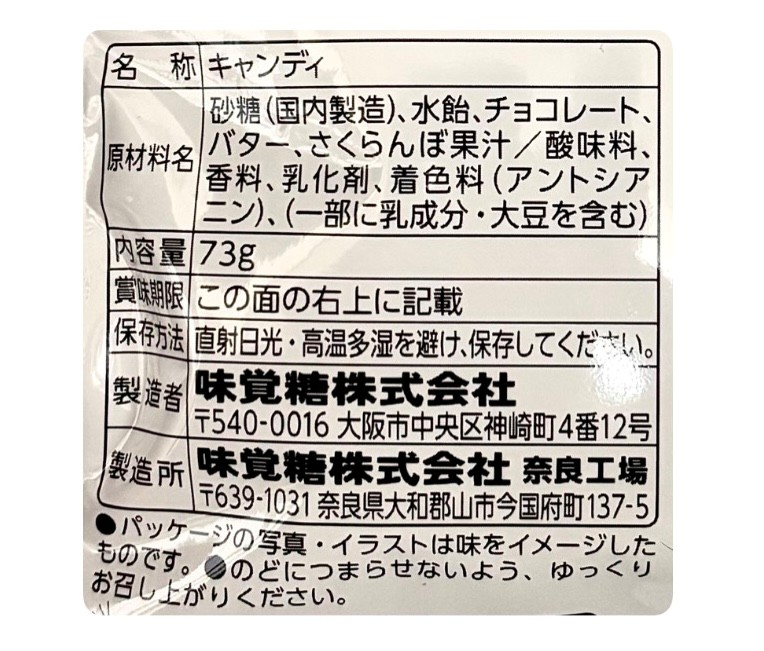 名 称 キャンディ
原材料名 砂糖(国内製造)、水飴、チョコレート、
バター、さくらんぼ果汁／酸味料、
香料、乳化剤、着色料(アントシア
ニン)、(一部に乳成分・大豆を含む)
内容量 73g
賞味期限 この面の右上に記載
保存方法 直射日光・高温多湿を避け、保存してください。
製造者 味覚糖株式会社
〒540-0016 大阪市中央区神崎町4番12号
製造所 味覚糖株式会社 奈良工場
〒639-1031 奈良県大和郡山市今国府町137-5
●パッケージの写真・イラストは味をイメージした
ものです。●のどにつまらせないよう、ゆっくり
お召し上がりください。